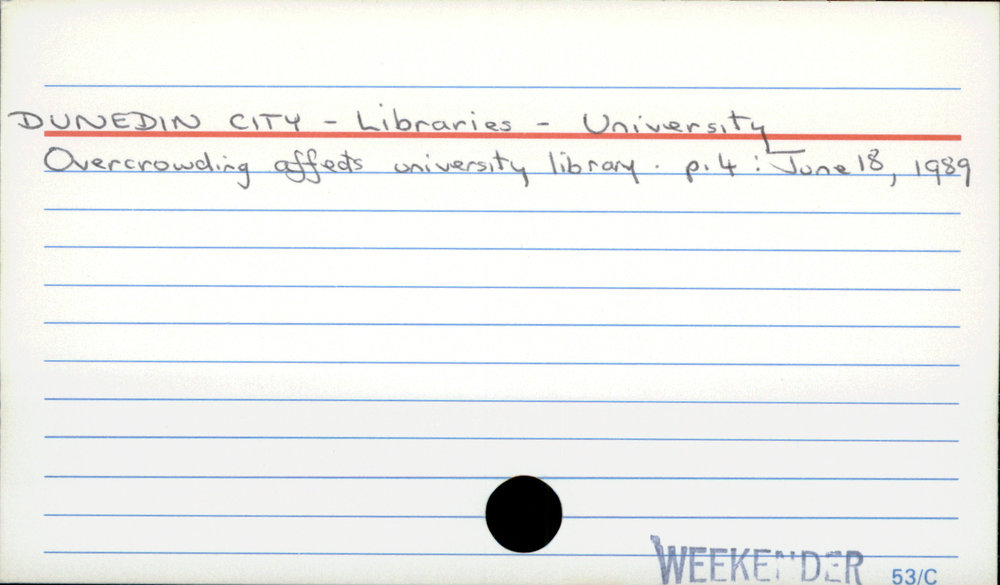 DUNEDIN CITY - Libraries - University
Overcrowding affects university library. p.4 : June 18, 1989
WEEKENDER
53/C